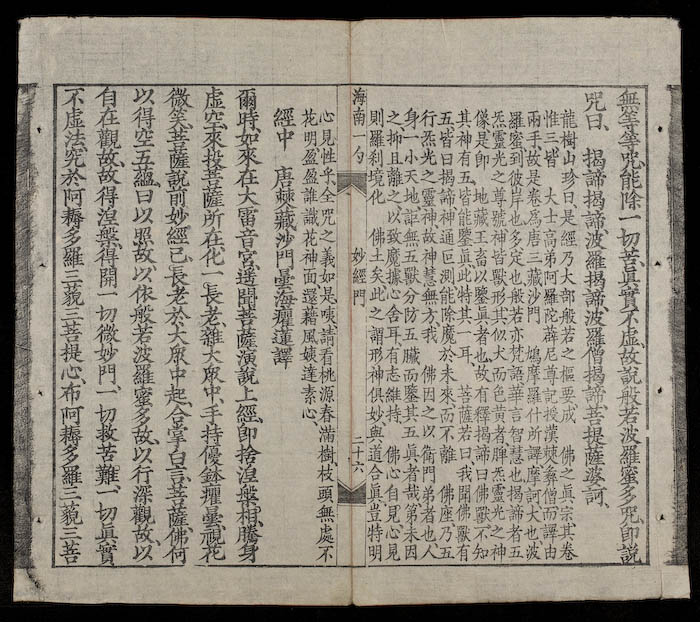 無等等咒能除一切苦真實不虛故說般若波羅蜜多咒即說
咒曰、揭諦揭諦、波羅揭諦、波羅僧揭諦、菩提薩婆訶、
龍樹山珍曰是經乃大部般若之樞要成 佛之真宗其卷
惟三皆 大士高弟阿羅陀薜尼尊記授漢僰彝僧而譯由
兩手故是卷為唐三藏沙門 鳩摩羅什所譯摩訶大也波
羅蜜到彼岸也多定也般若亦梵語華言智慧也揭諦者五
炁靈光之尊號神皆獸形其似犬而色黃者脾炁靈光之神
像是即 地藏王畜以鑒真者也故有釋揭諦曰佛獸不知
其神有五皆能鑒真此特其一耳 菩薩若曰我聞佛獸有
五皆曰揭諦神通叵測能除魔於未來而不離 佛座乃五
行炁光之靈神故神慧無方我 佛因之以衛門弟者也人
身一小天地詎無五獸分防五臟而鑒其五真者哉第未因
之抑且離之以致魔據心舍耳有志維持 佛心自見心見
則羅剎境化 佛土矣此之謂形神俱妙與道合真豈特明
海南一勺 妙經門 二十六
心見性乎全咒之義如是噢請看桃源春滿樹枝頭無處不
花明盈盈誰識花神面還藉風姨達素心、
經中 唐僰藏沙門曇海癯蓮譯
爾時、如來在大雷音宮、遙聞菩薩演說上經、即捨涅槃相、騰身
虛空、來投菩薩所在、化一長老、雜大眾中、手持優鉢癯曇、視花
微笑、菩薩說前妙經已、長老於大眾中起、合掌白言、菩薩佛何
以得空五蘊、曰以照故、以依般若波羅蜜多故、以行深觀故、以
自在觀故、故得涅槃、得開一切微妙門、一切救苦難、一切真實
不虛法、究於阿耨多羅三藐三菩提心、布阿耨多羅三藐三菩